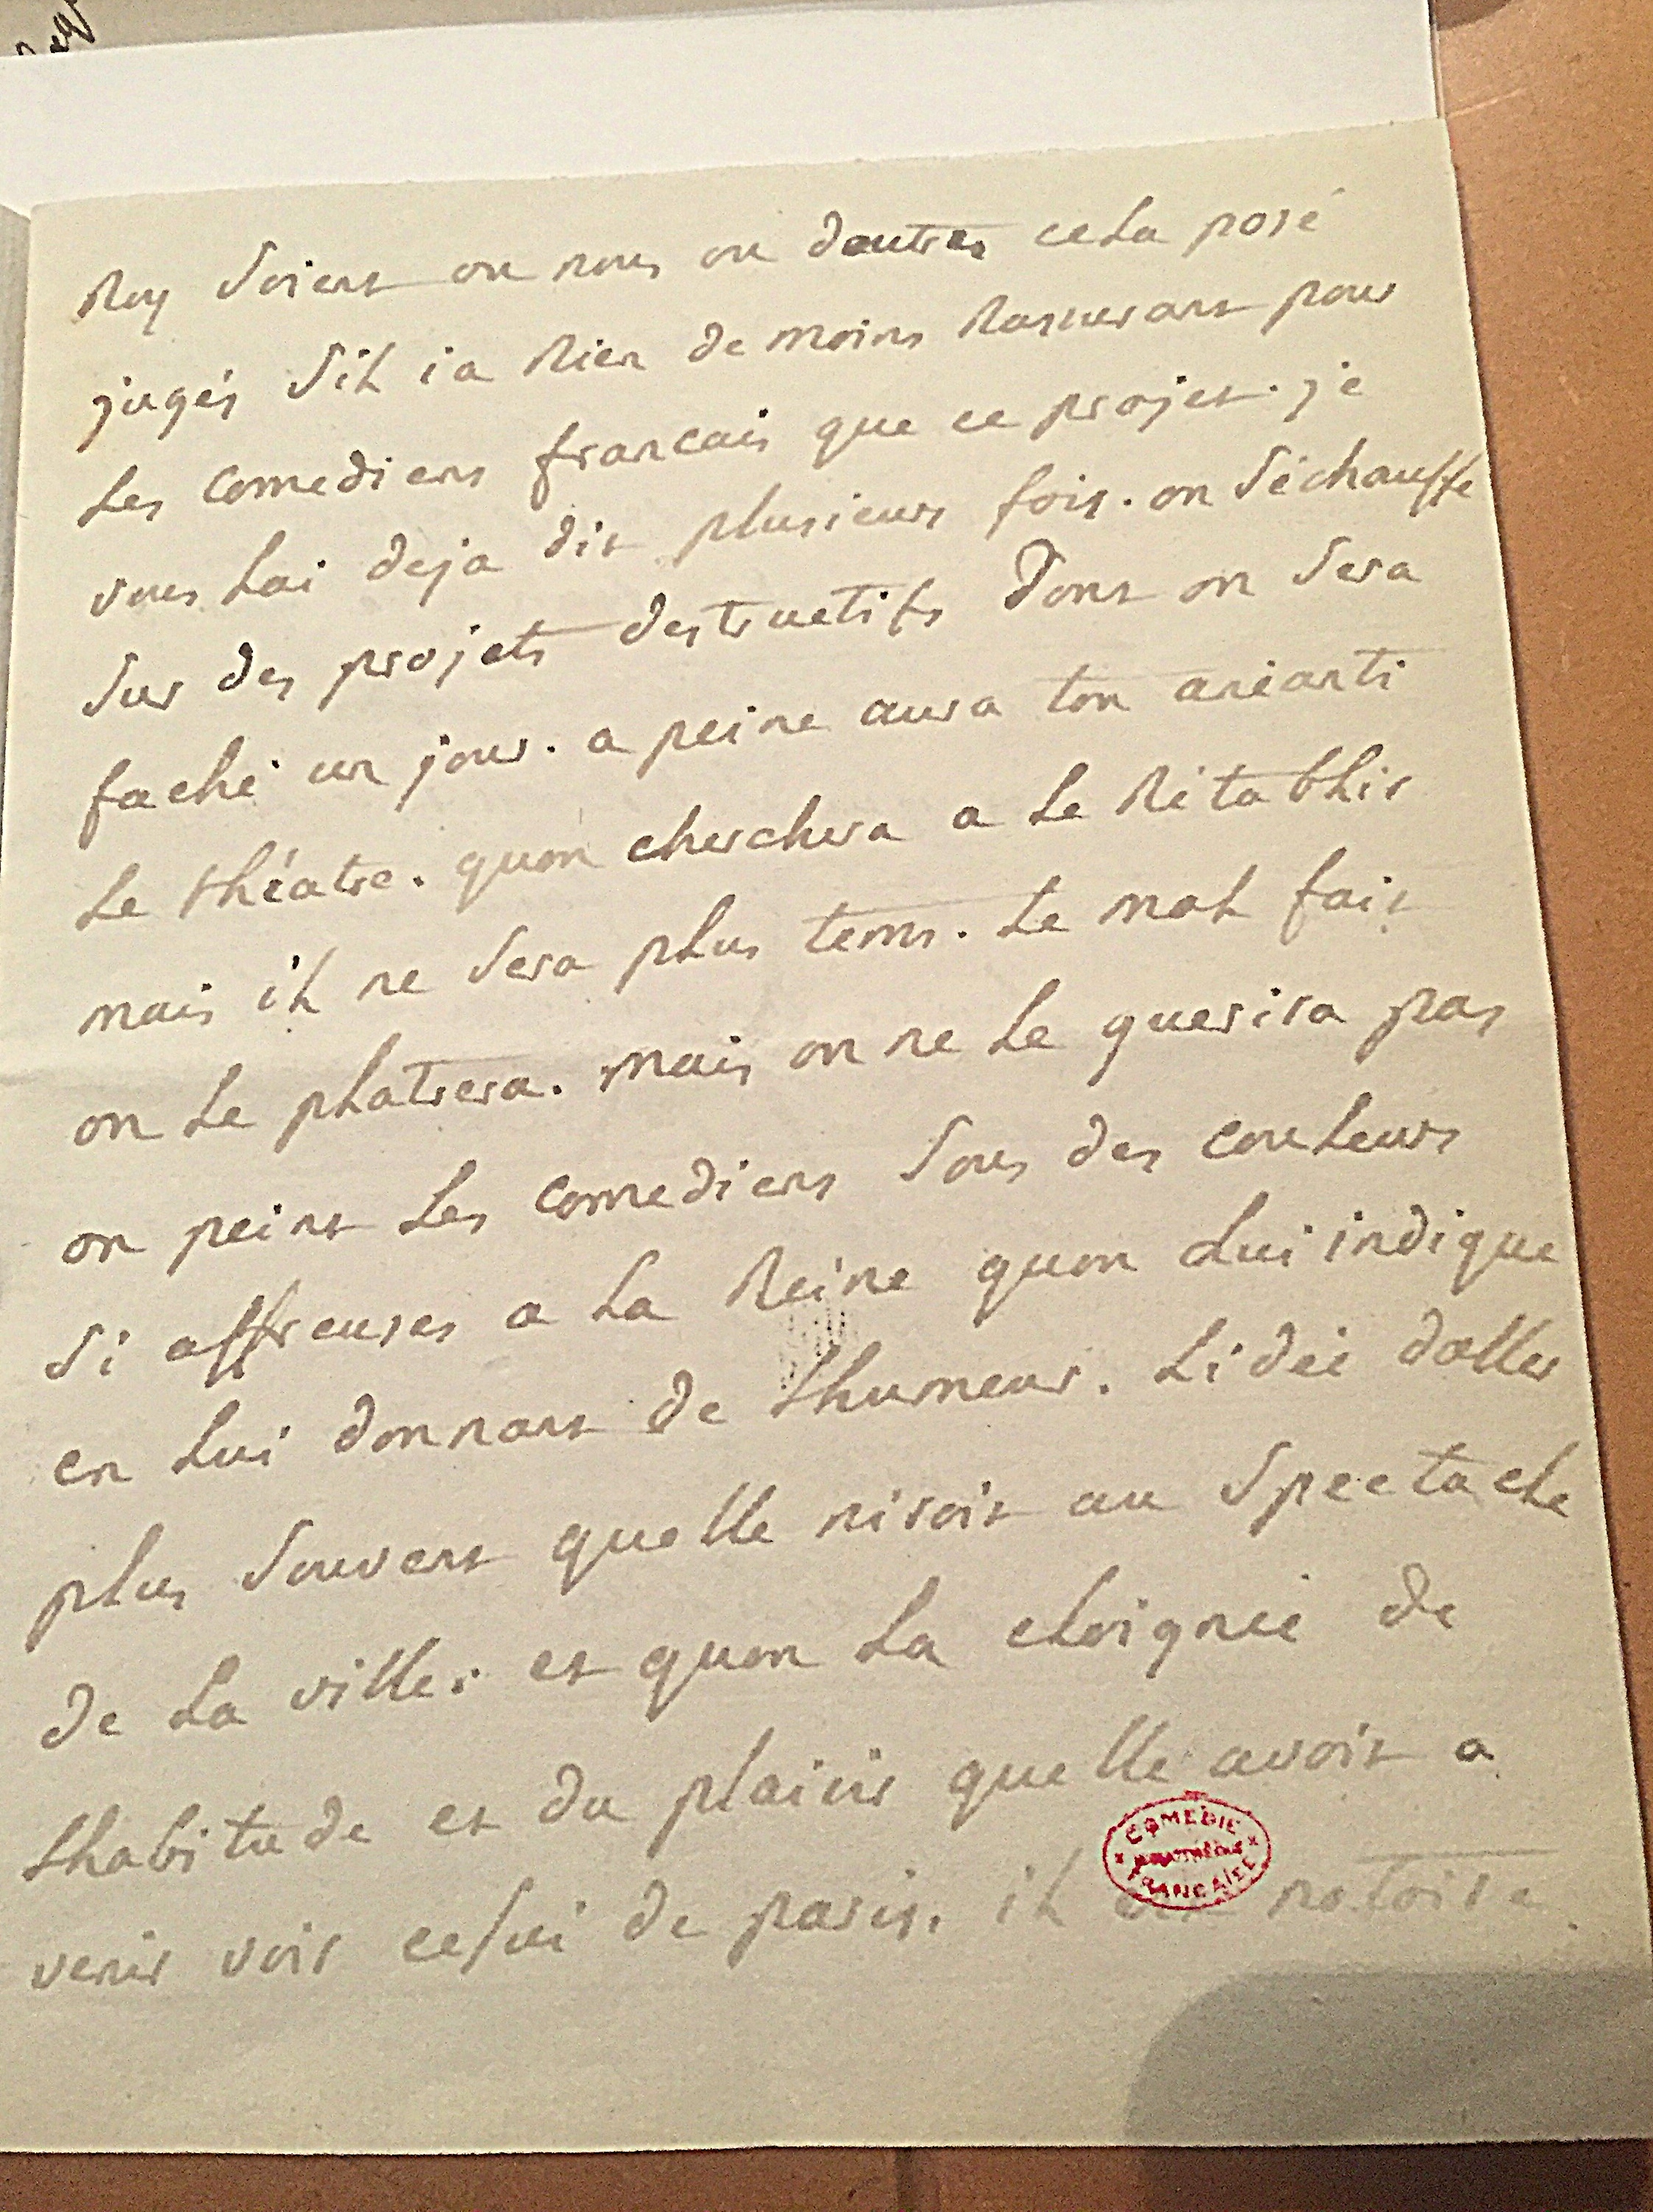 Roy soient ou nous ou dautres cela posé
jugés sil i a Rien de moins Rassurant pour
les comediens francais que ce projet. je
vous lai deja dit plusieurs fois. on séchauffe
sur des projets destructifs dont on sera
faché un jour. a peine aura ton anéanti
le théatre. quon cherchera a le Rétablir
mais il ne sera plus tems. le mal fait
on le platrera. mais on ne le guerira pas
on peint les comediens sous des couleurs
si affreuses a la Reine quon lui indique
en lui donnant de lhumeur. lidée daller
plus souvent quelle niroit au spectacle
de la ville. et quon la eloignée de
lhabitude et du plaisir quelle avoit a
venir voir celui de paris. il est notoire
COMEDIE
FRANCAISE